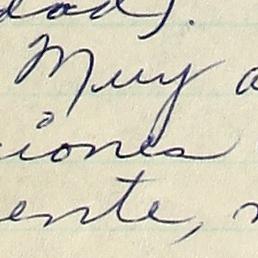 dad).
Muy a
ciones
ente,